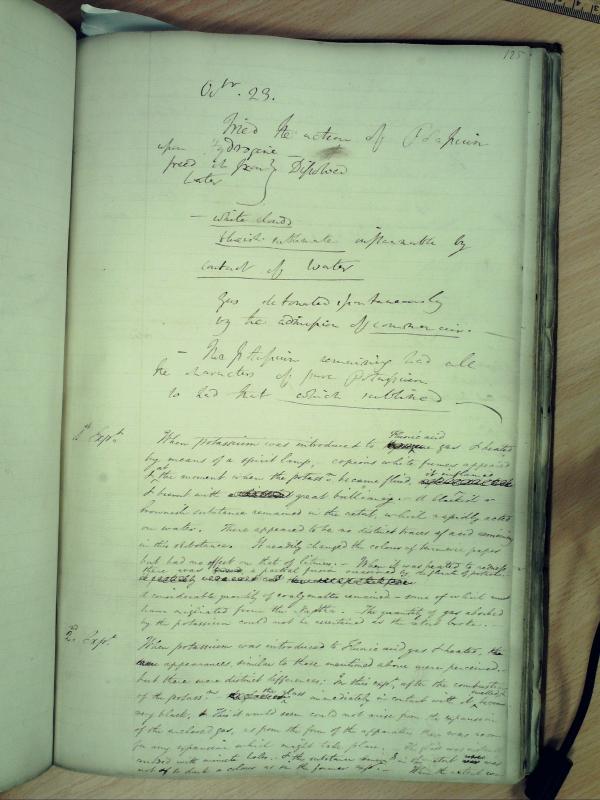 125
Octr. 23.
Tried the action of Potassium
upon Hydrogene
freed it from Dissolved
Water
— white clouds
bluish sublimate inflammable by
contact of water
gas detonated spontaneously
by the admission of common air. —
— The Potassium remaining had all
the characters of pure Potassium
& had that which sublimed —
1st Expt.
Fluoric acid
When potassium was introduced to gas & heated
by means of a spirit lamp, copious white fumes appeared
& at the moment when the potassm became fluid, it inflamed
& burnt with great brilliancy. A blackish or
brownish substance remained in the retort, which rapidly acted
on water. There appeared to be no distinct traces of acid remaining
in this substance. It readily changed the colour of turmeric paper
but had no effect on that of litmus. — When it was heated to redness
there was a partial fusion
A considerable quantity of coaly matter remained — some of which must
have originated from the Naptha. — The quantity of gas absorbed
by the potassium could not be ascertained as the retort broke. —
2d. Expt.
When potassium was introduced to Fluoric acid gas & heated, the
appearances, similar to those mentioned above were perceived. —
but there were distinct differences. In this expt, after the combustion
of the potassm the glass immediately in contact with it became
very black, & this it would seem could not arise from the expansion
of the enclosed gas, as from the form of the apparatus there was room
for any expansion which might take place. The glass was
covered with minute holes. & the substance in the retort was
not of so dark a colour as in the former expt. — When the retort was